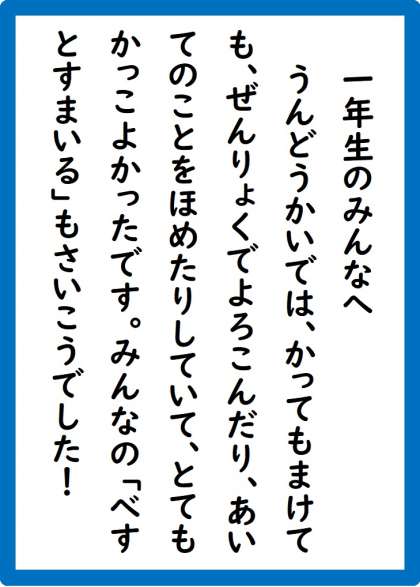 一年生のみんなへ
うんどうかいでは、かってもまけて
も、ぜんりょくでよろこんだり、あい
てのことをほめたりしていて、とても
かっこよかったです。みんなの「べす
とすまいる」もさいこうでした！